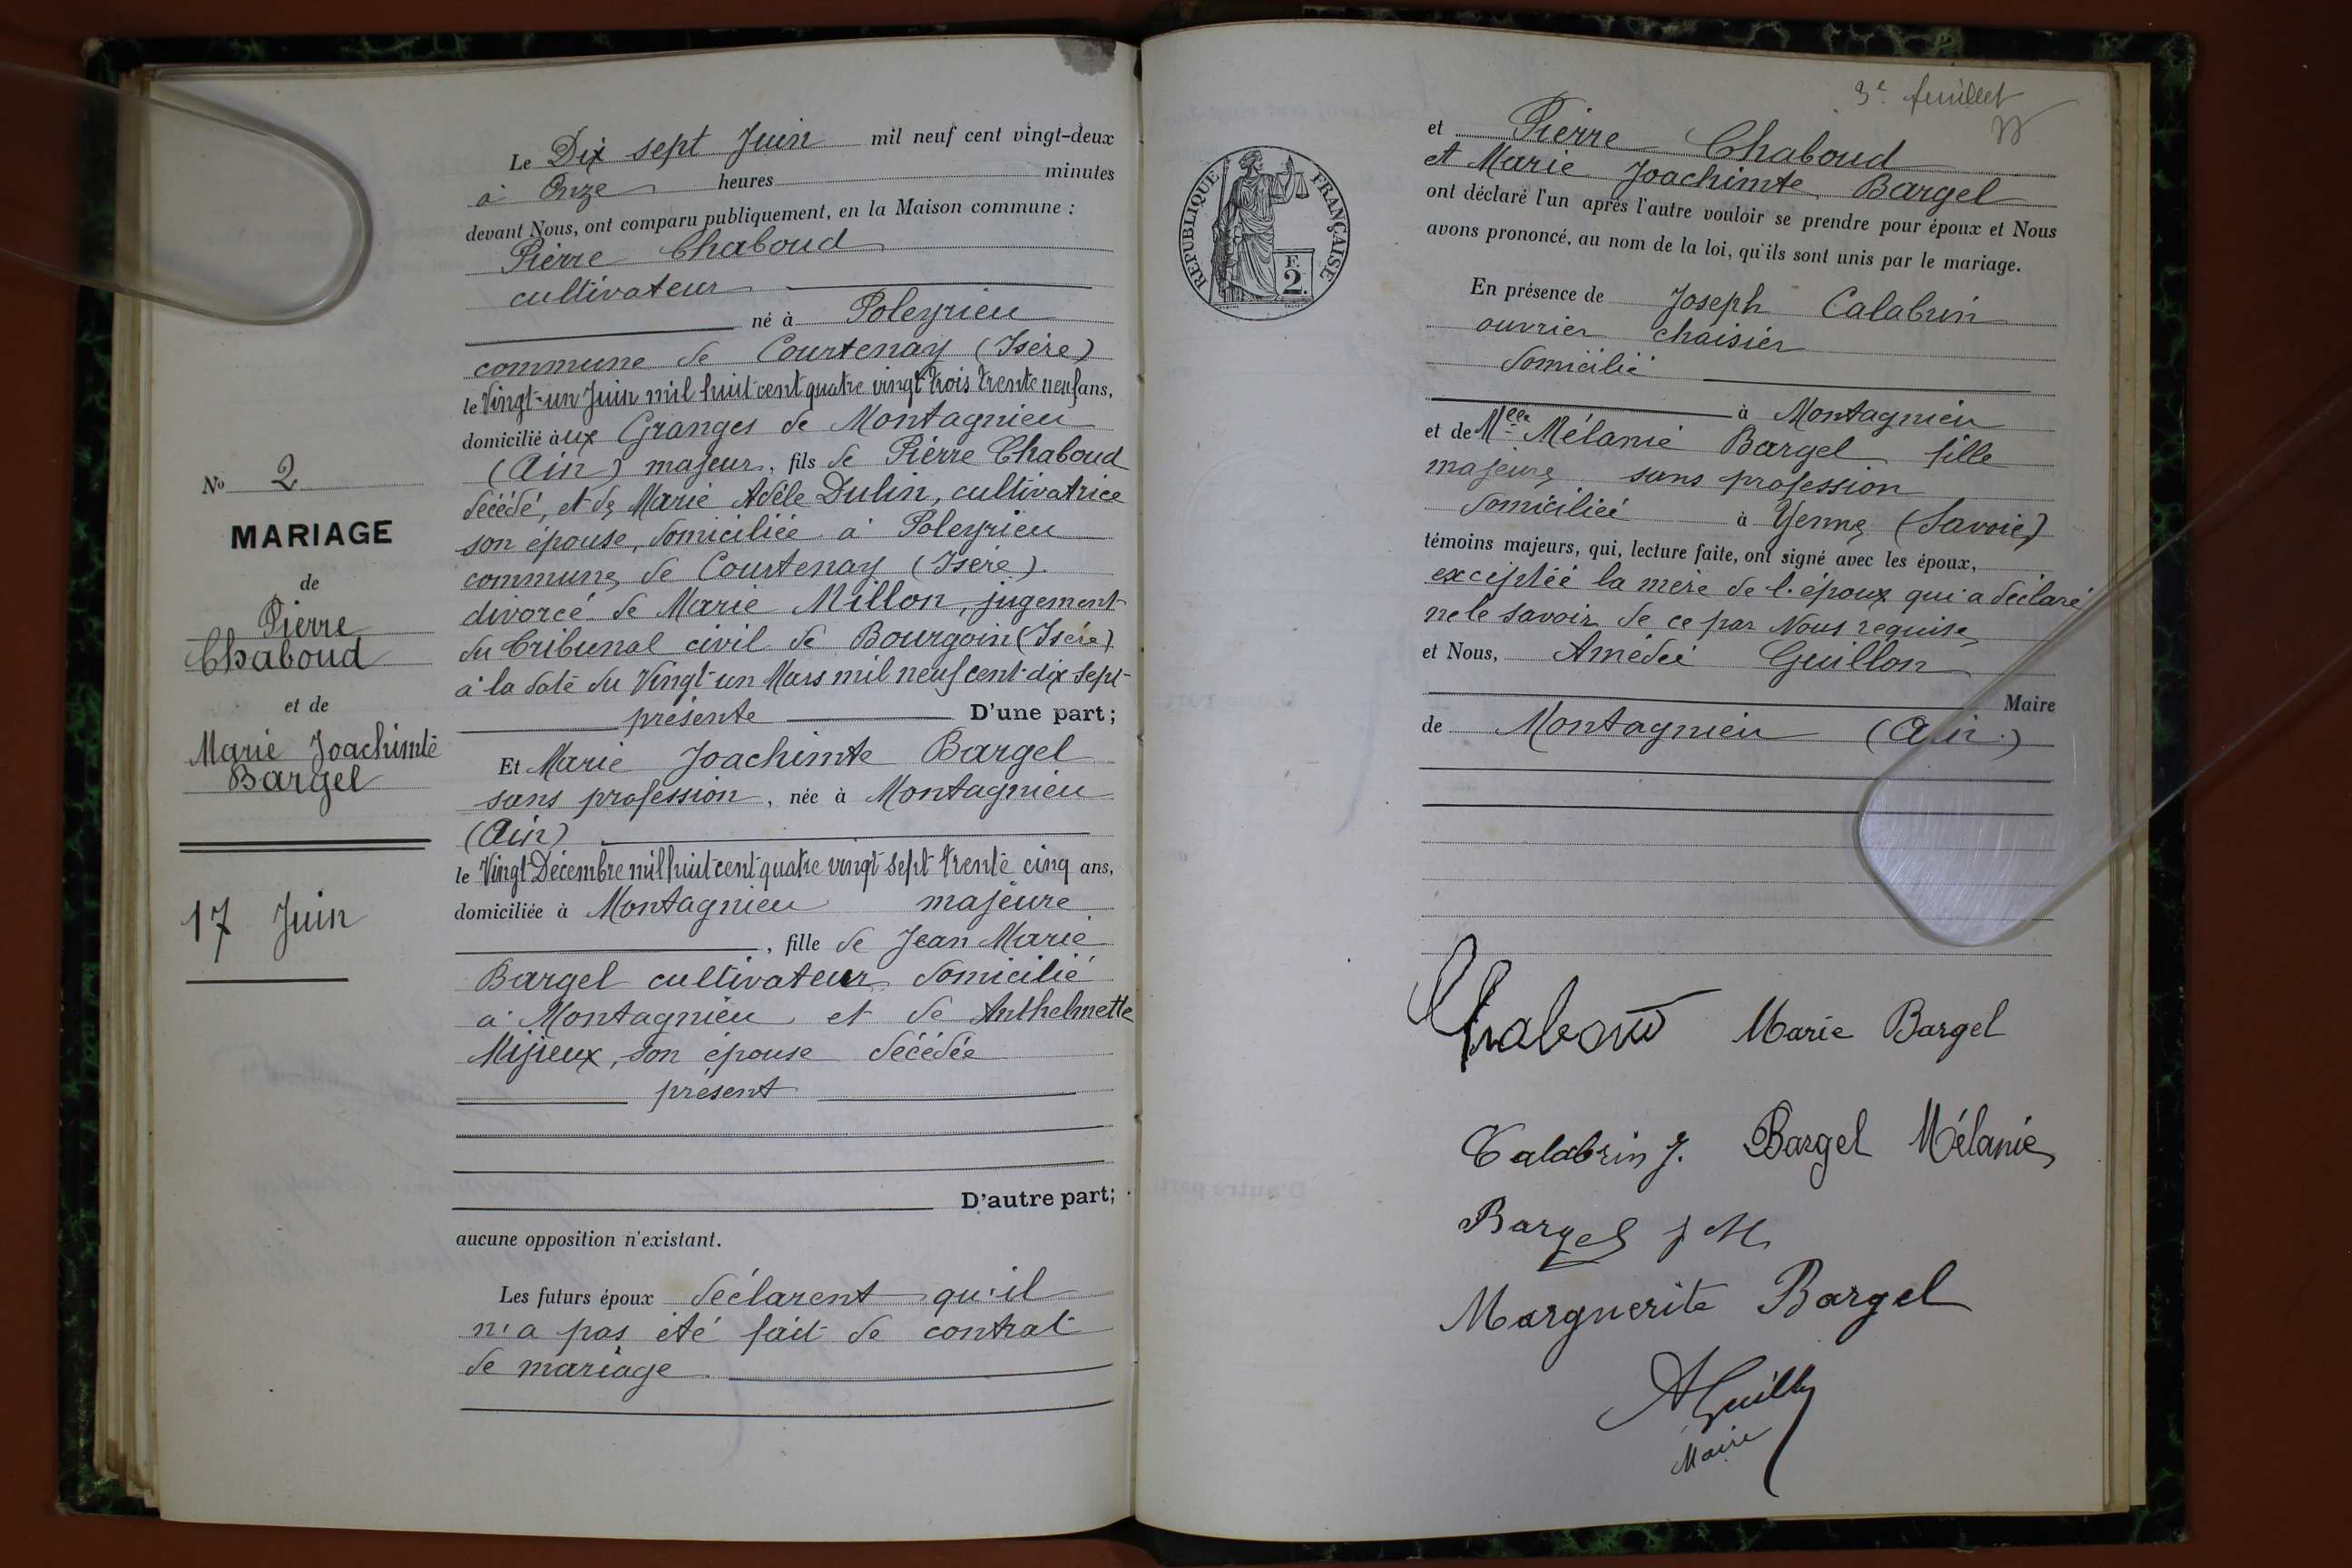 No 2
MARIAGE
de
Pierre
Chaboud
et de
Marie Joachimte
Bargel
17 Juin
Le Dix sept Juin mil neuf cent vingt-deux
à Onze heures minutes
devant Nous, ont comparu publiquement, en la Maison commune :
Pierre Chaboud
cultivateur
né à Poleyrieu
commune de Courtenay (Isère)
le Vingt-un Juin mil huit cent quatre vingt trois trente neuf ans,
domicilié àux Granges de Montagnieu
(Ain) majeur, fils de Pierre Chaboud
décédé, et de Marie Adèle Dulin, cultivatrice
son épouse, domiciliée à Poleyrieu
commune de Courtenay (Isère).
divorcé de Marie Millon, jugement
du Tribunal civil de Bourgoin (Isère)
à la date du Vingt-un Mars mil neuf cent dix sept
présente D'une part;
Et Marie Joachimte Bargel
sans profession, née à Montagnieu
(Ain)
le Vingt Décembre mil huit cent quatre vingt sept trente cinq ans,
domiciliée à Montagnieu majeure
, fille de Jean Marie
Bargel cultivateur domicilié
à Montagnieu et de Anthelmette
Mijieux, son épouse décédée
présent
D'autre part;
aucune opposition n'existant.
Les futurs époux déclarent qu'il
n'a pas été fait de contrat
de mariage
3e feuillet
REPUBLIQUE FRANÇAISE
F.
2.
et Pierre Chaboud
et Marie Joachimte Bargel
ont déclaré l'un après l'autre vouloir se prendre pour époux et Nous
avons prononcé, au nom de la loi, qu'ils sont unis par le mariage.
En présence de Joseph Calabrin
ouvrier chaisier
domicilié
à Montagnieu
et de Melle Mélanie Bargel fille
majeure sans profession
domiciliée à Yenne (Savoie)
témoins majeurs, qui, lecture faite, ont signé avec les époux,
exceptée la mère de l'époux qui a déclaré
ne le savoir de ce par Nous requise
et Nous, Amédée Guillon
Maire
de Montagnieu (Ain)
Chaboud Marie Bargel
Calabrin J. Bargel Mélanie
Bargel J M
Marguerite Bargel
A Guillon
Maire